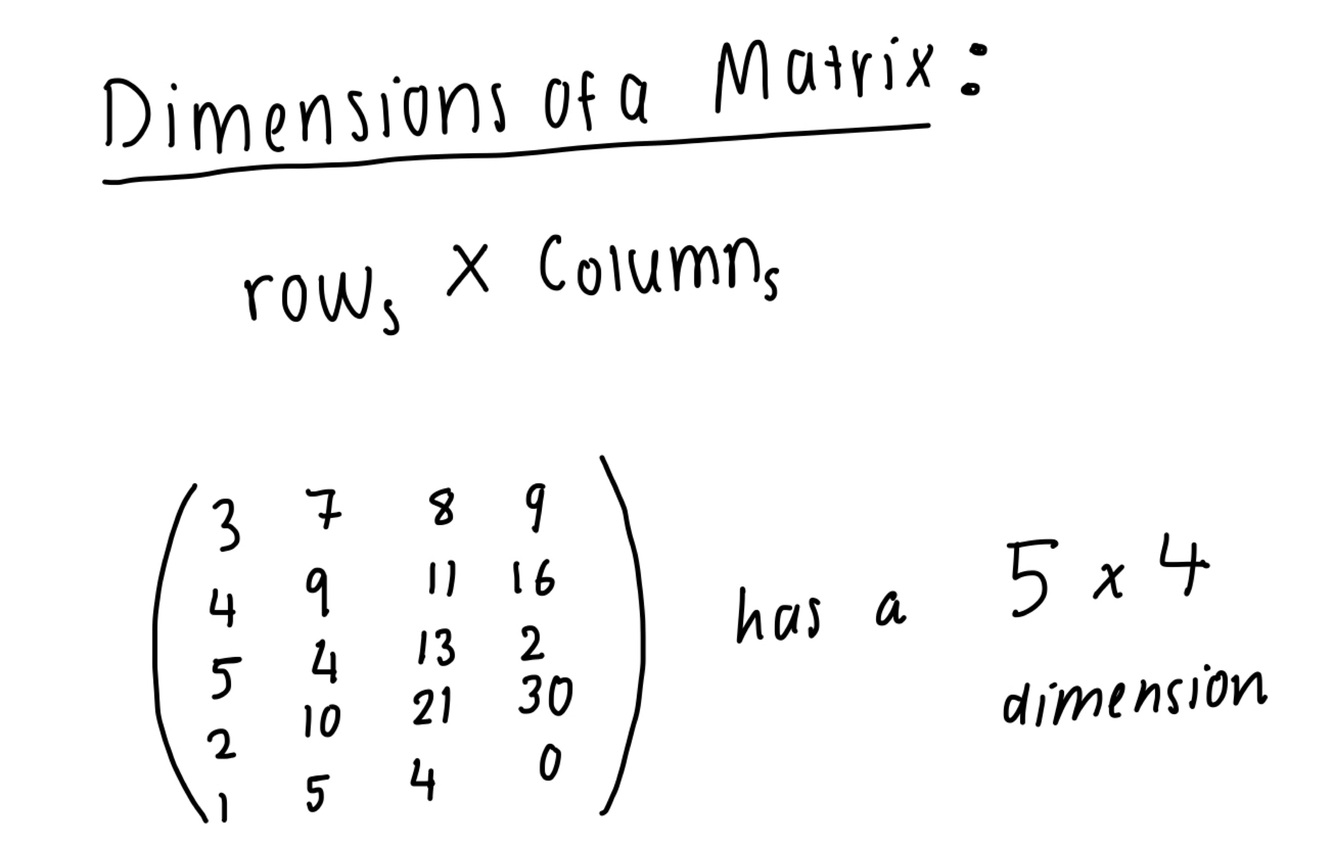 Dimensions of a Matrix:
rows x Columns
3 7 8 9
4 9 11 16
5 4 13 2
2 10 21 30
1 5 4 0
has a 5 x 4
dimension